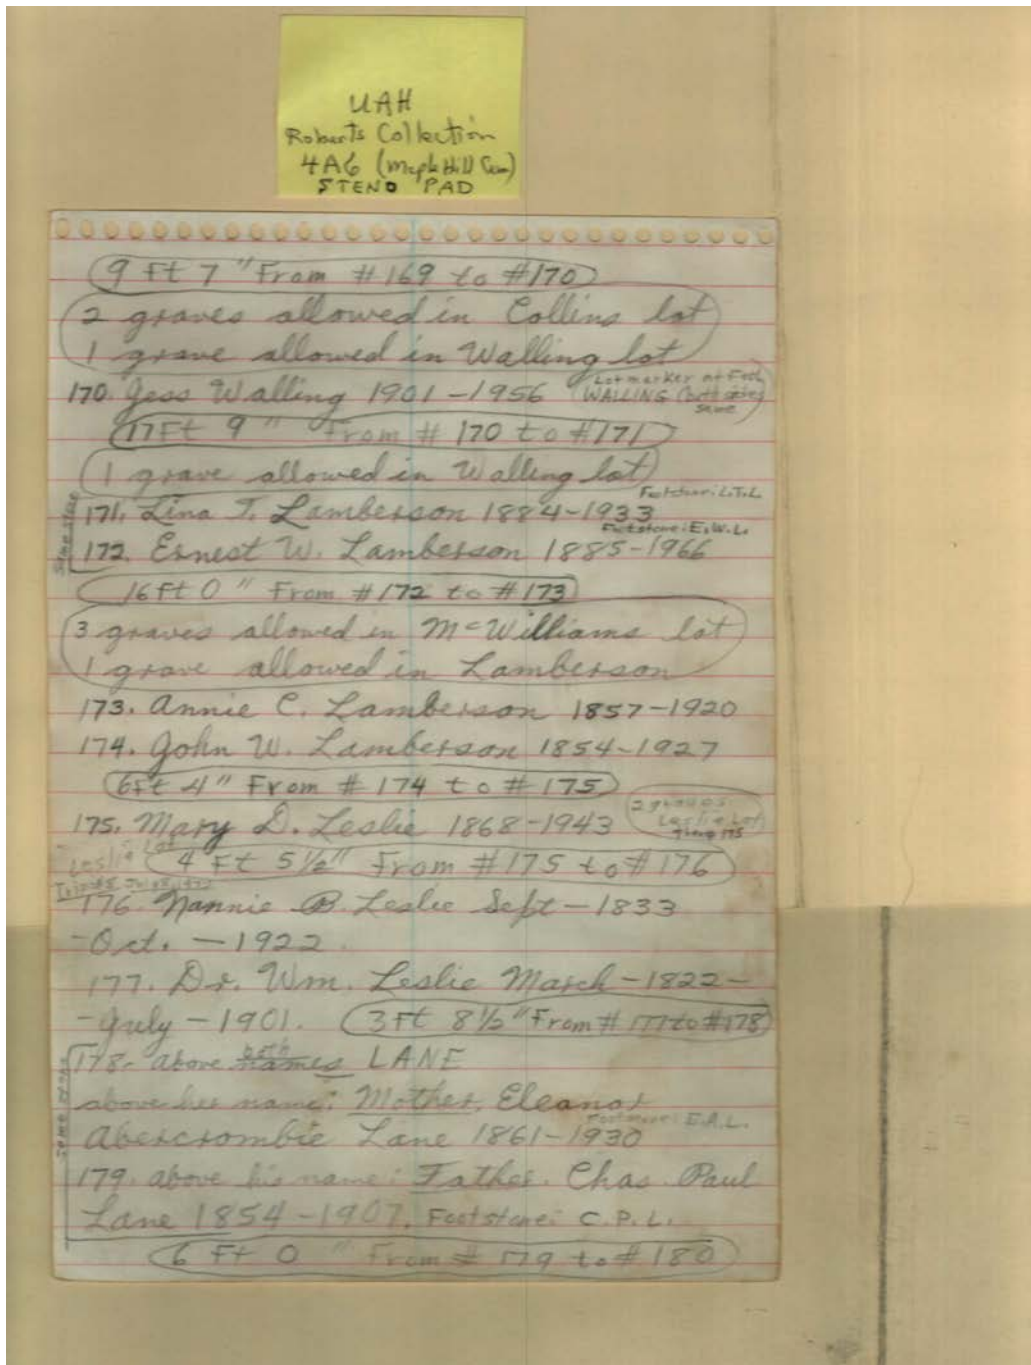 UAH
Roberts Collection
4A6 (Maple Hill Cem)
STENO PAD
9 Ft 7" From #169 to #170
2 graves allowed in Collins lot
1 grave allowed in Walling lot
170. Jess Walling 1901-1956
Lot marker at Foot
WALLING (both sides
same)
17 Ft 9" From # 170 to #171
1 grave allowed in Walling lot
Footstone: L.T.L.
171. Lina T. Lamberson 1884-1933
Footstone: E.W.L.
Same stone
172. Ernest W. Lamberson 1885-1966
16 Ft 0" From #172 to #173
3 graves allowed in McWilliams lot
1 grave allowed in Lamberson
173. Annie C. Lamberson 1857-1920
174. John W. Lamberson 1854-1927
6 Ft 4" From # 174 to # 175
175. Mary D. Leslie 1868-1943
2 graves
Leslie Lot
175
Leslie Lot
4 Ft 5 1/2" From #175 to #176
176. Nannie B. Leslie Sept-1833
-Oct. -1922
177. Dr. Wm. Leslie March-1822-
-July-1901. 3 Ft 8 1/2" From # 177 to #178
178. above both names LANE
above her name: Mother, Eleanor
Footstone: E.A.L.
Abercrombie Lane 1861-1930
Same stone
179. above his name: Father. Chas. Paul
Lane 1854-1907. Footstone: C.P.L.
6 Ft 0" From # 179 to #180